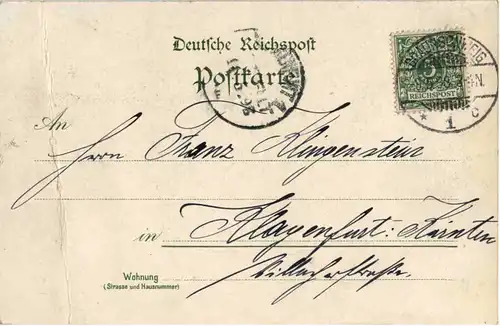 Deutsche Reichspost
Postkarte
BRAUNSCHWEIG
5
REICHSPOST
* 1 c
An
Herrn Franz Klingenstein
in Klagenfurt: Kärnten
Villacherstraße.
Wohnung
(Strasse und Hausnummer)